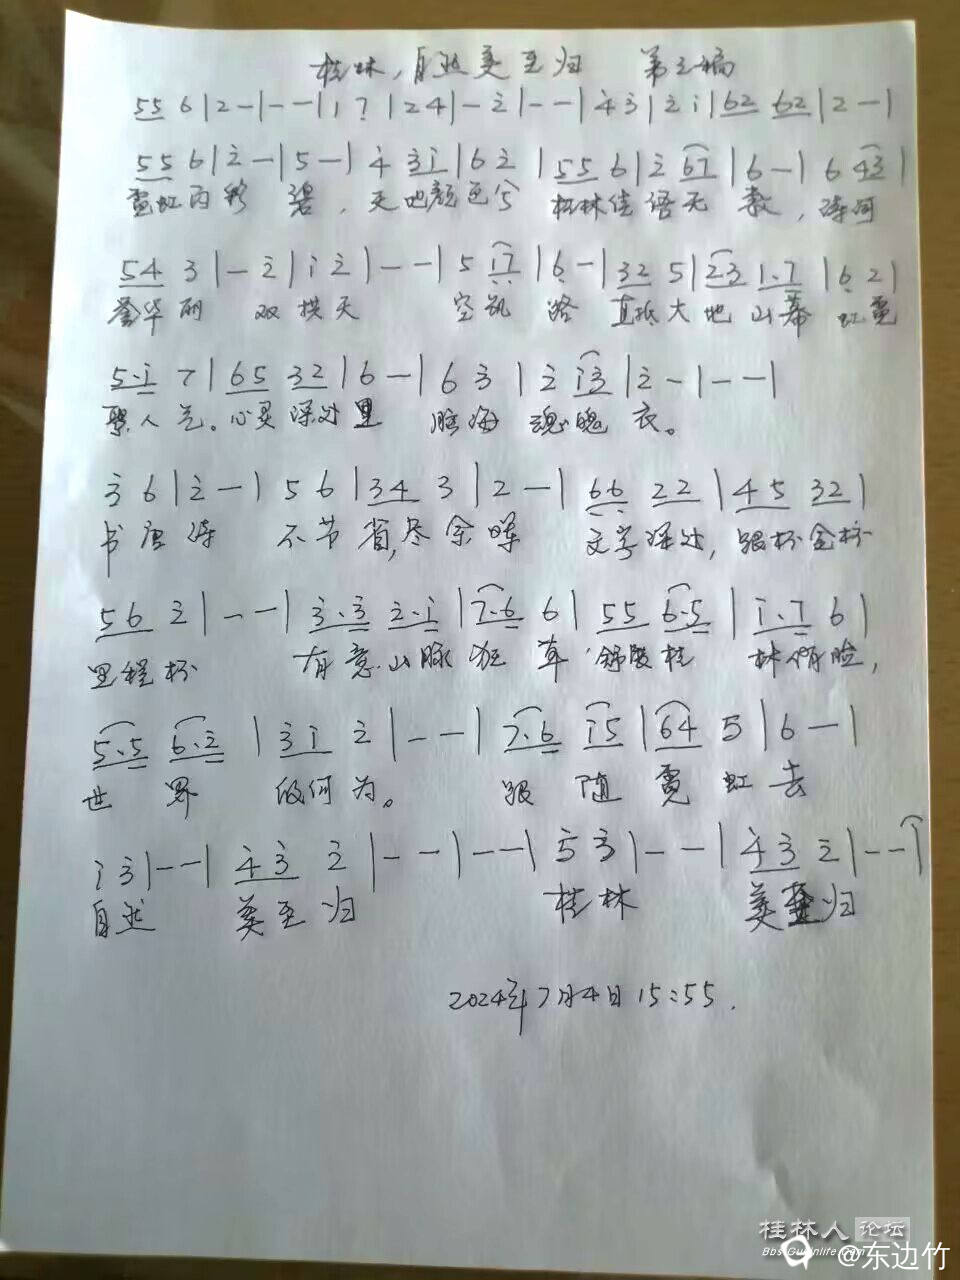 桂林,自然美至归 第2稿
55 6|2-|--|i 7|24|-2̇|--|4̇ 3̇|2̇ i|62 62|2-|
55 6|2̇-|5-|4̇ 3̇i|6 2̇|55 6|2̇ 67|6-|6 43|
霓虹两彩 碧,天地颜色兮 桂林佳语无数,漓河
54 3|-2̇|i 2̇|--|5 i7|6-|32 5|23 1.7|6 2|
誉华丽 双拱天 空凯路 直抵大地山幕 虹霓
5.i 7|65 32|6-|6 3|2̇ i3̇|2̇-|--|
聚人气。心灵深处里 脑海魂魄衣。
3̇ 6|2̇-|5 6|34 3|2-|66 22|45 32|
书唐诗 不节省,尽余晖 文字深处,银杯金杯
56 2̇|--|3̇.3̇ 2̇.i|7.6 6|55 6.5|i.7 6|
里程杯 有意山脉狂草 舒展桂林俏脸,
5.5 6.2̇|3̇i 2̇|--|7.6 i5|64 5|6-|
世界 的何为。 跟随霓虹去
i 3̇|--|4̇3̇ 2̇|--|--|5̇ 3̇|--|4̇3̇ 2̇|--|
自然 美至归 桂林 美至归
2024年7月4日15:55.
桂林人论坛
Bbs.Guilinlife.Com
@东边竹